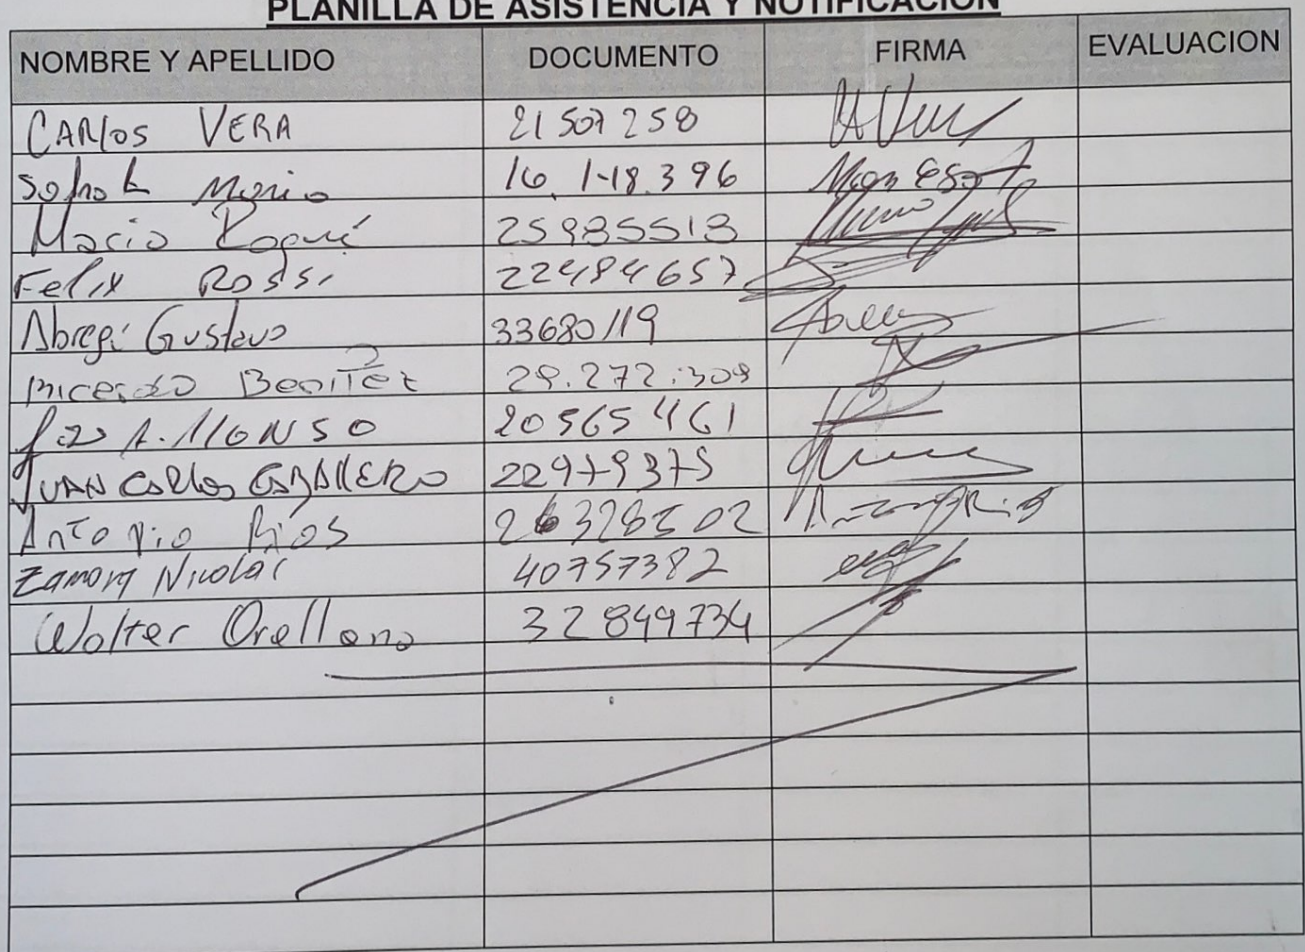 PLANILLA DE ASISTENCIA Y NOTIFICACION
NOMBRE Y APELLIDO DOCUMENTO FIRMA EVALUACION
CARlos VERA 21507258
Mario 396
Mario Roqué 25935513
Felix Rossi 22484657
Abregi Gustavo 33680119
Benitez 29.272.309
A. AlloNSO 20565461
JUAN CARlos CABAllERO 22979375
Antonio Rios 26328502
Zamora Nicolás 40757382
Walter Orellano 32849734